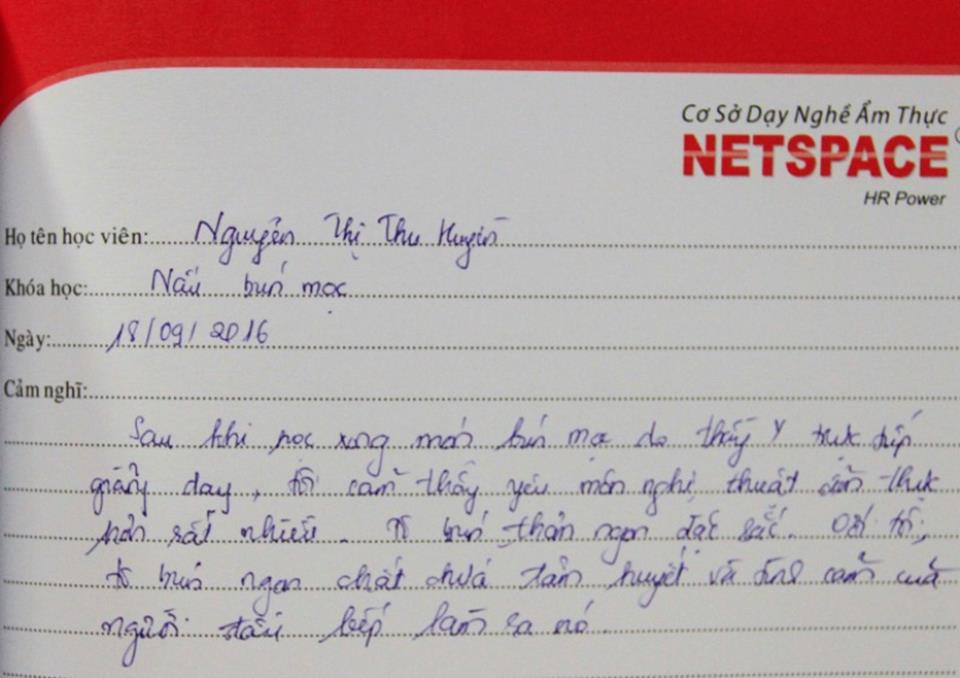 Cơ Sở Dạy Nghề Ẩm Thực
NETSPACE
HR Power
Họ tên học viên: Nguyễn Thị Thu Huyền
Khóa học: Nấu bún mọc
Ngày: 18/09/2016
Cảm nghĩ:
Sau khi học xong món bún mọc do thầy Y trực tiếp
giảng dạy, tôi cảm thấy yêu môn nghệ thuật ẩm thực
hơn rất nhiều. Tô bún thơm ngon đặc sắc. Với tôi,
tô bún ngon chất chứa tâm huyết và tình cảm của
người đầu bếp làm ra nó.